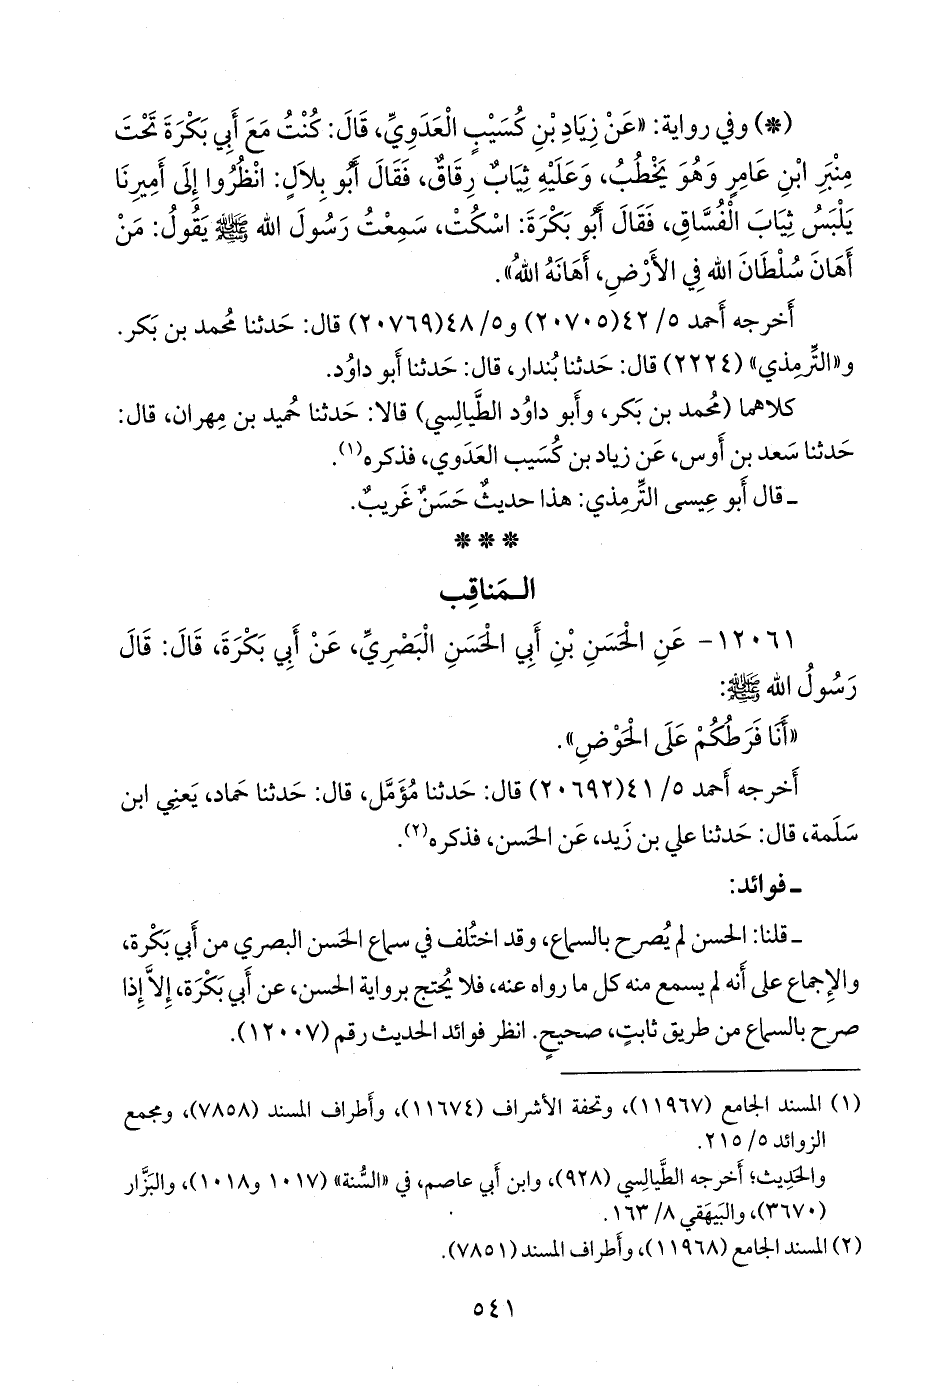 (*) وفي رواية: «عَنْ زِيَادِ بْنِ كُسَيْبٍ الْعَدَوِيِّ، قَالَ: كُنْتُ مَعَ أَبِي بَكْرَةَ تَحْتَ
مِنْبَرِ ابْنِ عَامِرٍ وَهُوَ يَخْطُبُ، وَعَلَيْهِ ثِيَابٌ رِقَاقٌ، فَقَالَ أَبُو بِلَالٍ: انْظُرُوا إِلَى أَمِيرِنَا
يَلْبَسُ ثِيَابَ الْفُسَّاقِ، فَقَالَ أَبُو بَكْرَةَ: اسْكُتْ، سَمِعْتُ رَسُولَ الله ﷺ يَقُولُ: مَنْ
أَهَانَ سُلْطَانَ الله فِي الأَرْضِ، أَهَانَهُ اللهُ».
أَخرجه أَحمد ٥/ ٤٢(٢٠٧٠٥) و٥/ ٤٨(٢٠٧٦٩) قال: حَدثنا مُحمد بن بَكر.
و«التِّرمِذي» (٢٢٢٤) قال: حَدثنا بُندار، قال: حَدثنا أَبو داوُد.
كلاهما (مُحمد بن بَكر، وأَبو داوُد الطَّيالِسي) قالا: حَدثنا حُميد بن مِهران، قال:
حَدثنا سَعد بن أَوس، عَن زياد بن كُسَيب العَدَوي، فذكره(١).
ـ قال أَبو عِيسى التِّرمِذي: هذا حديثٌ حَسَنٌ غَريبٌ.
***
الـمَناقِب
١٢٠٦١- عَنِ الْحَسَنِ بْنِ أَبِي الْحَسَنِ الْبَصْرِيِّ، عَنْ أَبِي بَكْرَةَ، قَالَ: قَالَ
رَسُولُ الله ﷺ:
«أَنَا فَرَطُكُمْ عَلَى الْحَوْضِ».
أَخرجه أَحمد ٥/ ٤١(٢٠٦٩٢) قال: حَدثنا مُؤَمَّل، قال: حَدثنا حَماد، يَعنِي ابن
سَلَمة، قال: حَدثنا علي بن زَيد، عَن الحَسن، فذكره(٢).
ـ فوائد:
ـ قلنا: الحسن لم يُصرح بالسماع، وقد اختُلف في سماع الحَسن البصري من أَبي بَكْرة،
والإِجماع على أَنه لم يسمع منه كل ما رواه عنه، فلا يُحتج برواية الحسن، عن أَبي بَكْرَة، إِلاَّ إِذا
صرح بالسماع من طريق ثابتٍ، صحيحٍ. انظر فوائد الحديث رقم (١٢٠٠٧).
(١) المسند الجامع (١١٩٦٧)، وتحفة الأشراف (١١٦٧٤)، وأطراف المسند (٧٨٥٨)، ومجمع
الزوائد ٥/ ٢١٥.
والحَدِيث؛ أَخرجه الطَّيالِسي (٩٢٨)، وابن أَبي عاصم، في «السُّنة» (١٠١٧ و١٠١٨)، والبَزَّار
(٣٦٧٠)، والبَيهَقي ٨/ ١٦٣.
(٢) المسند الجامع (١١٩٦٨)، وأطراف المسند (٧٨٥١).
٥٤١